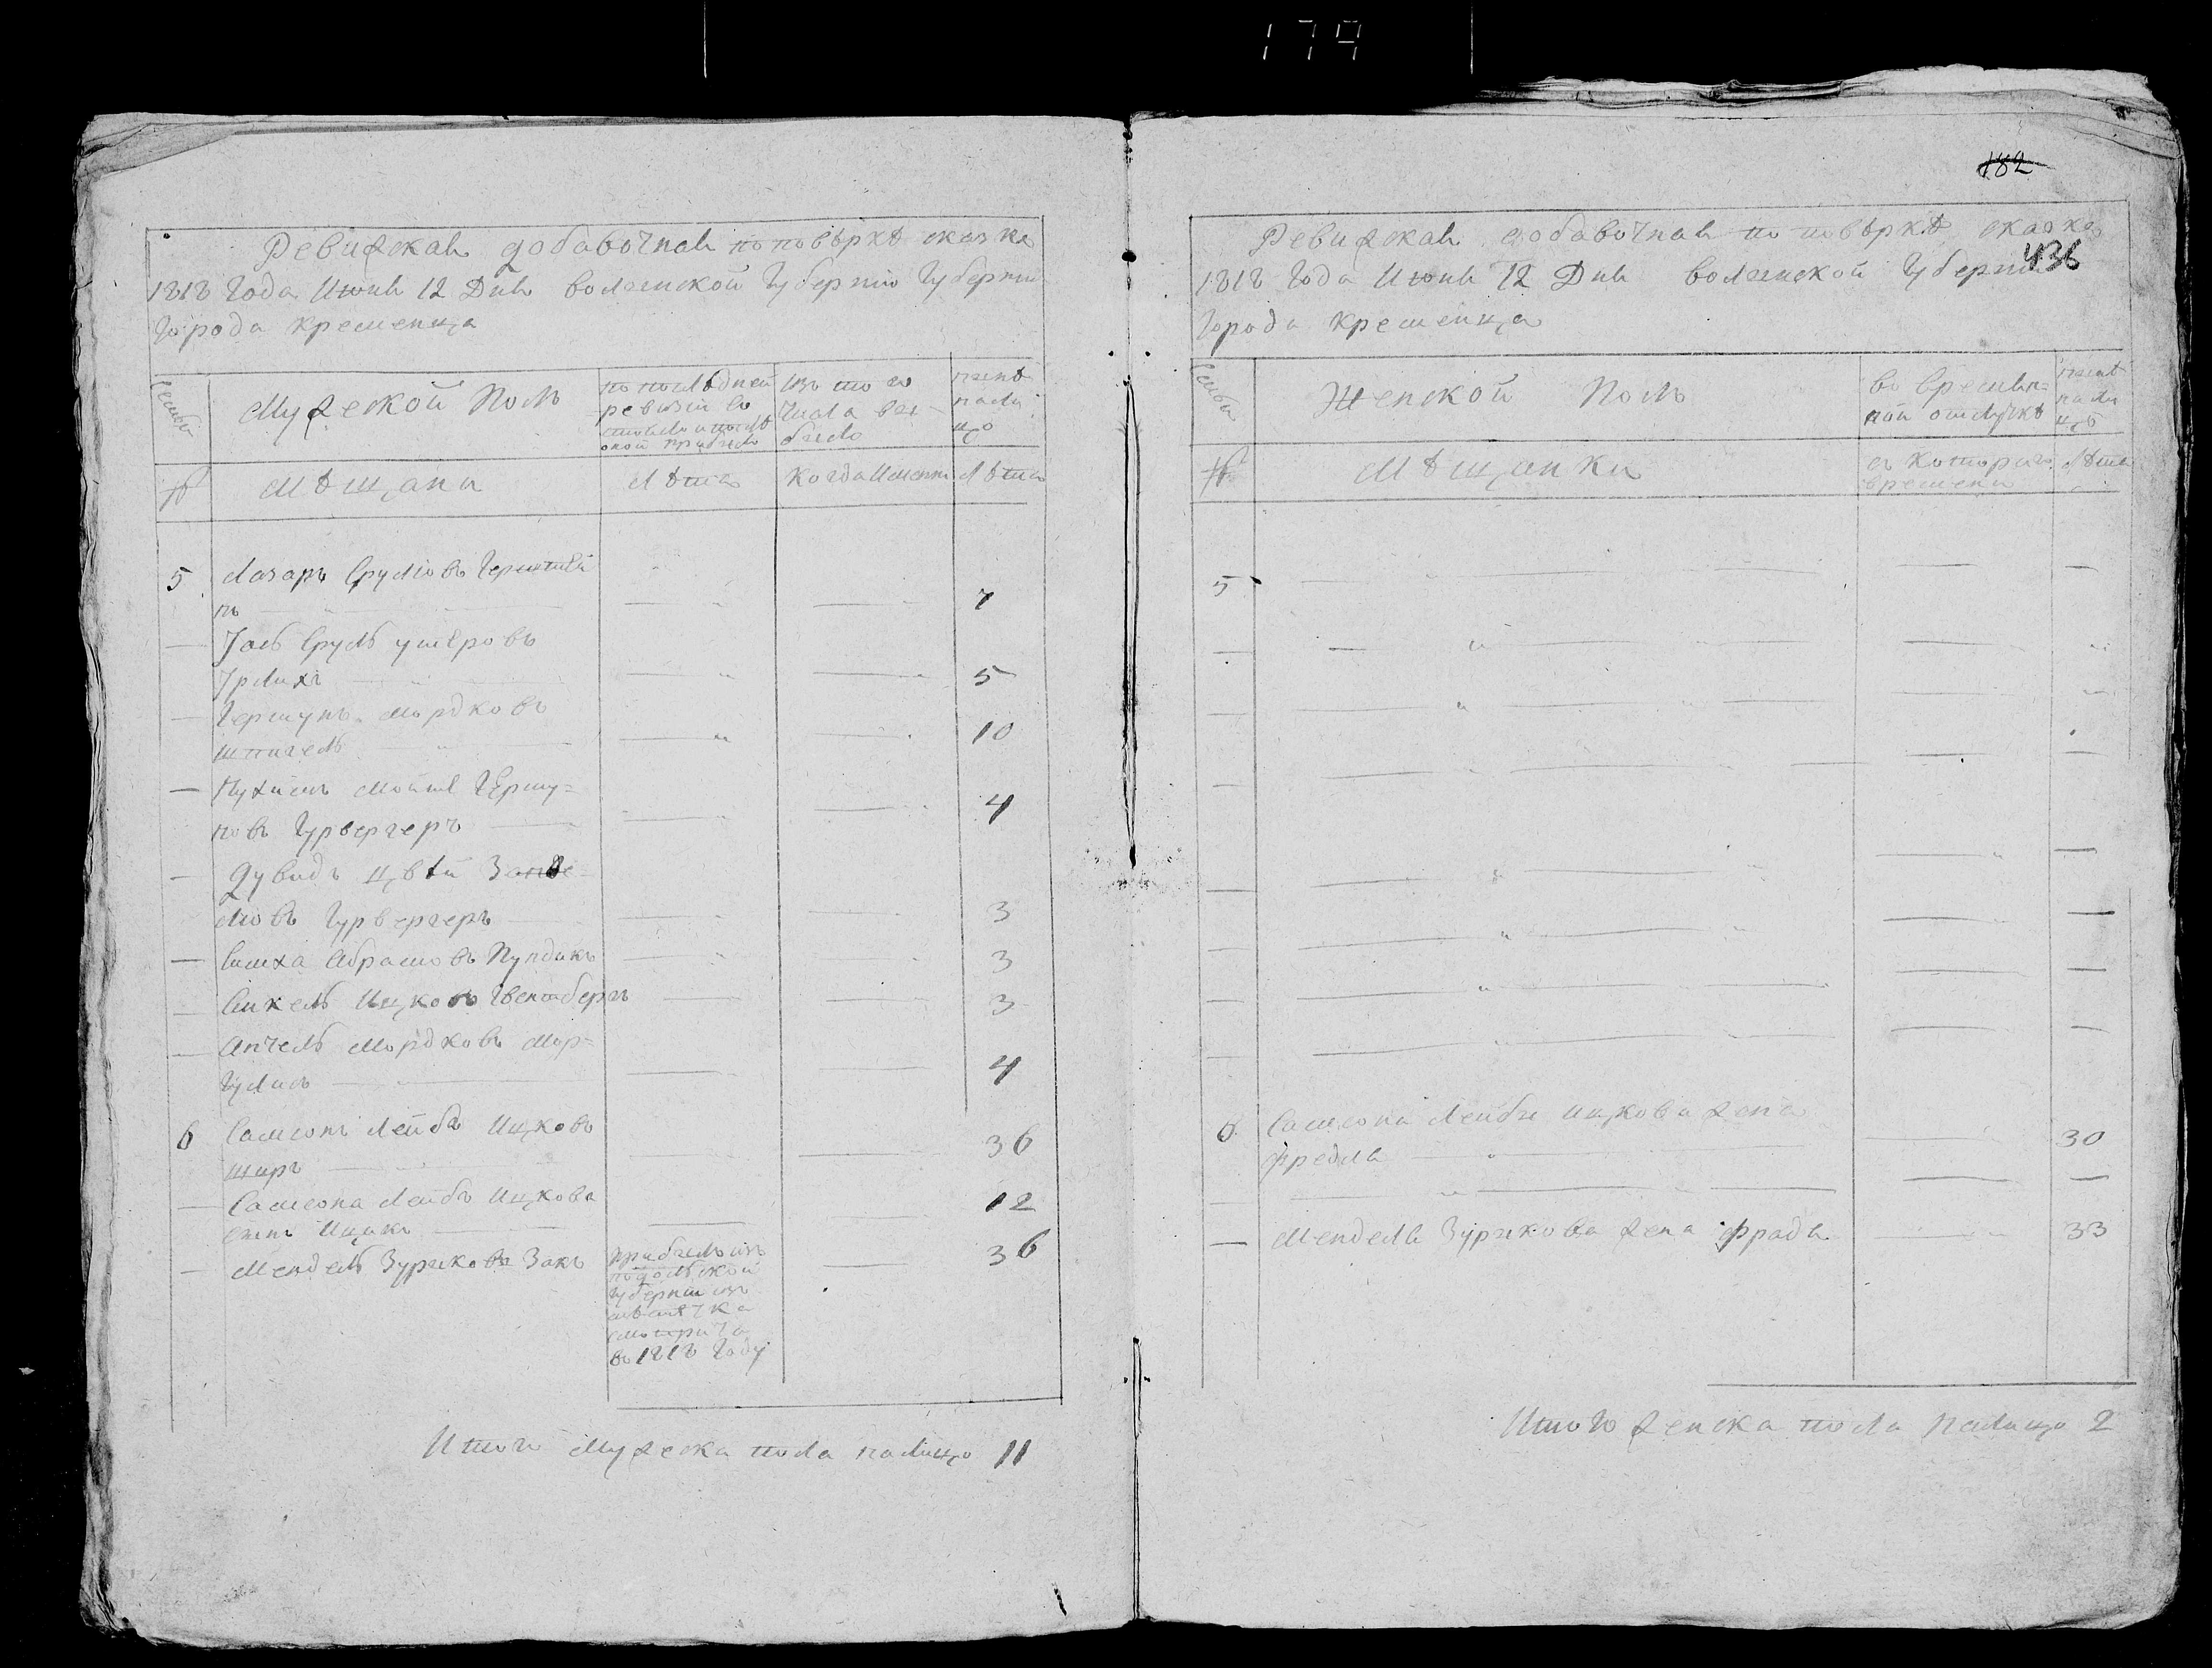 174
Ревизская добавочная по повѣркѣ сказка
1818 Года Июня 12 Дня волынской Губернiю Губернiи
Города Кременца
Семьи
Мужеской Полъ
по последней
ревизiи со
стояло и послѣ
оной прибыло
Изъ то го
числа вы
было
ныне
нали
цо
№
Мѣщани
Лѣта
Когда Именно
Лѣта
5 Лазаръ Срулiовъ Герштей
нъ 7
Iось Сруль ушеровъ
Iрлихъ 5
Гершунъ Мордковъ
шпигель 10
Нухимъ Мойше Гершу=
новъ Гурвергеръ 4
Дувидъ Цвѣй Занве=
лiовъ Гурвергеръ 3
Симха Абрамовъ Пундикъ 3
Анчель Мордковъ Мор=
гулисъ 4
6 Самсонъ Лейба Ицковъ
ширъ 36
Самсона Лейбъ Ицкова
сынъ Ицикъ 12
Мендель Зуриковъ Закъ 36
прибылъ изъ
подольской
Губернiи изъ
мѣстечка
Смотрича
въ 1818 Году
Итого мужеска пола налицо 11
182
436
Ревизская добавочная по повѣркѣ сказка
1818 Года Июня 12 Дня волынской Губернiи
Города Кременца
Семьи
Женской Полъ
во времян=
ной отлучкѣ
ныне
нали
цо
№
Мѣщанки
съ котораго
времени
Лѣта
5
6 Самсона Лейбы Ицкова жена
Фредля 30
Менделя Зурикова жена Фрадя 33
Итого женска пола налицо 2